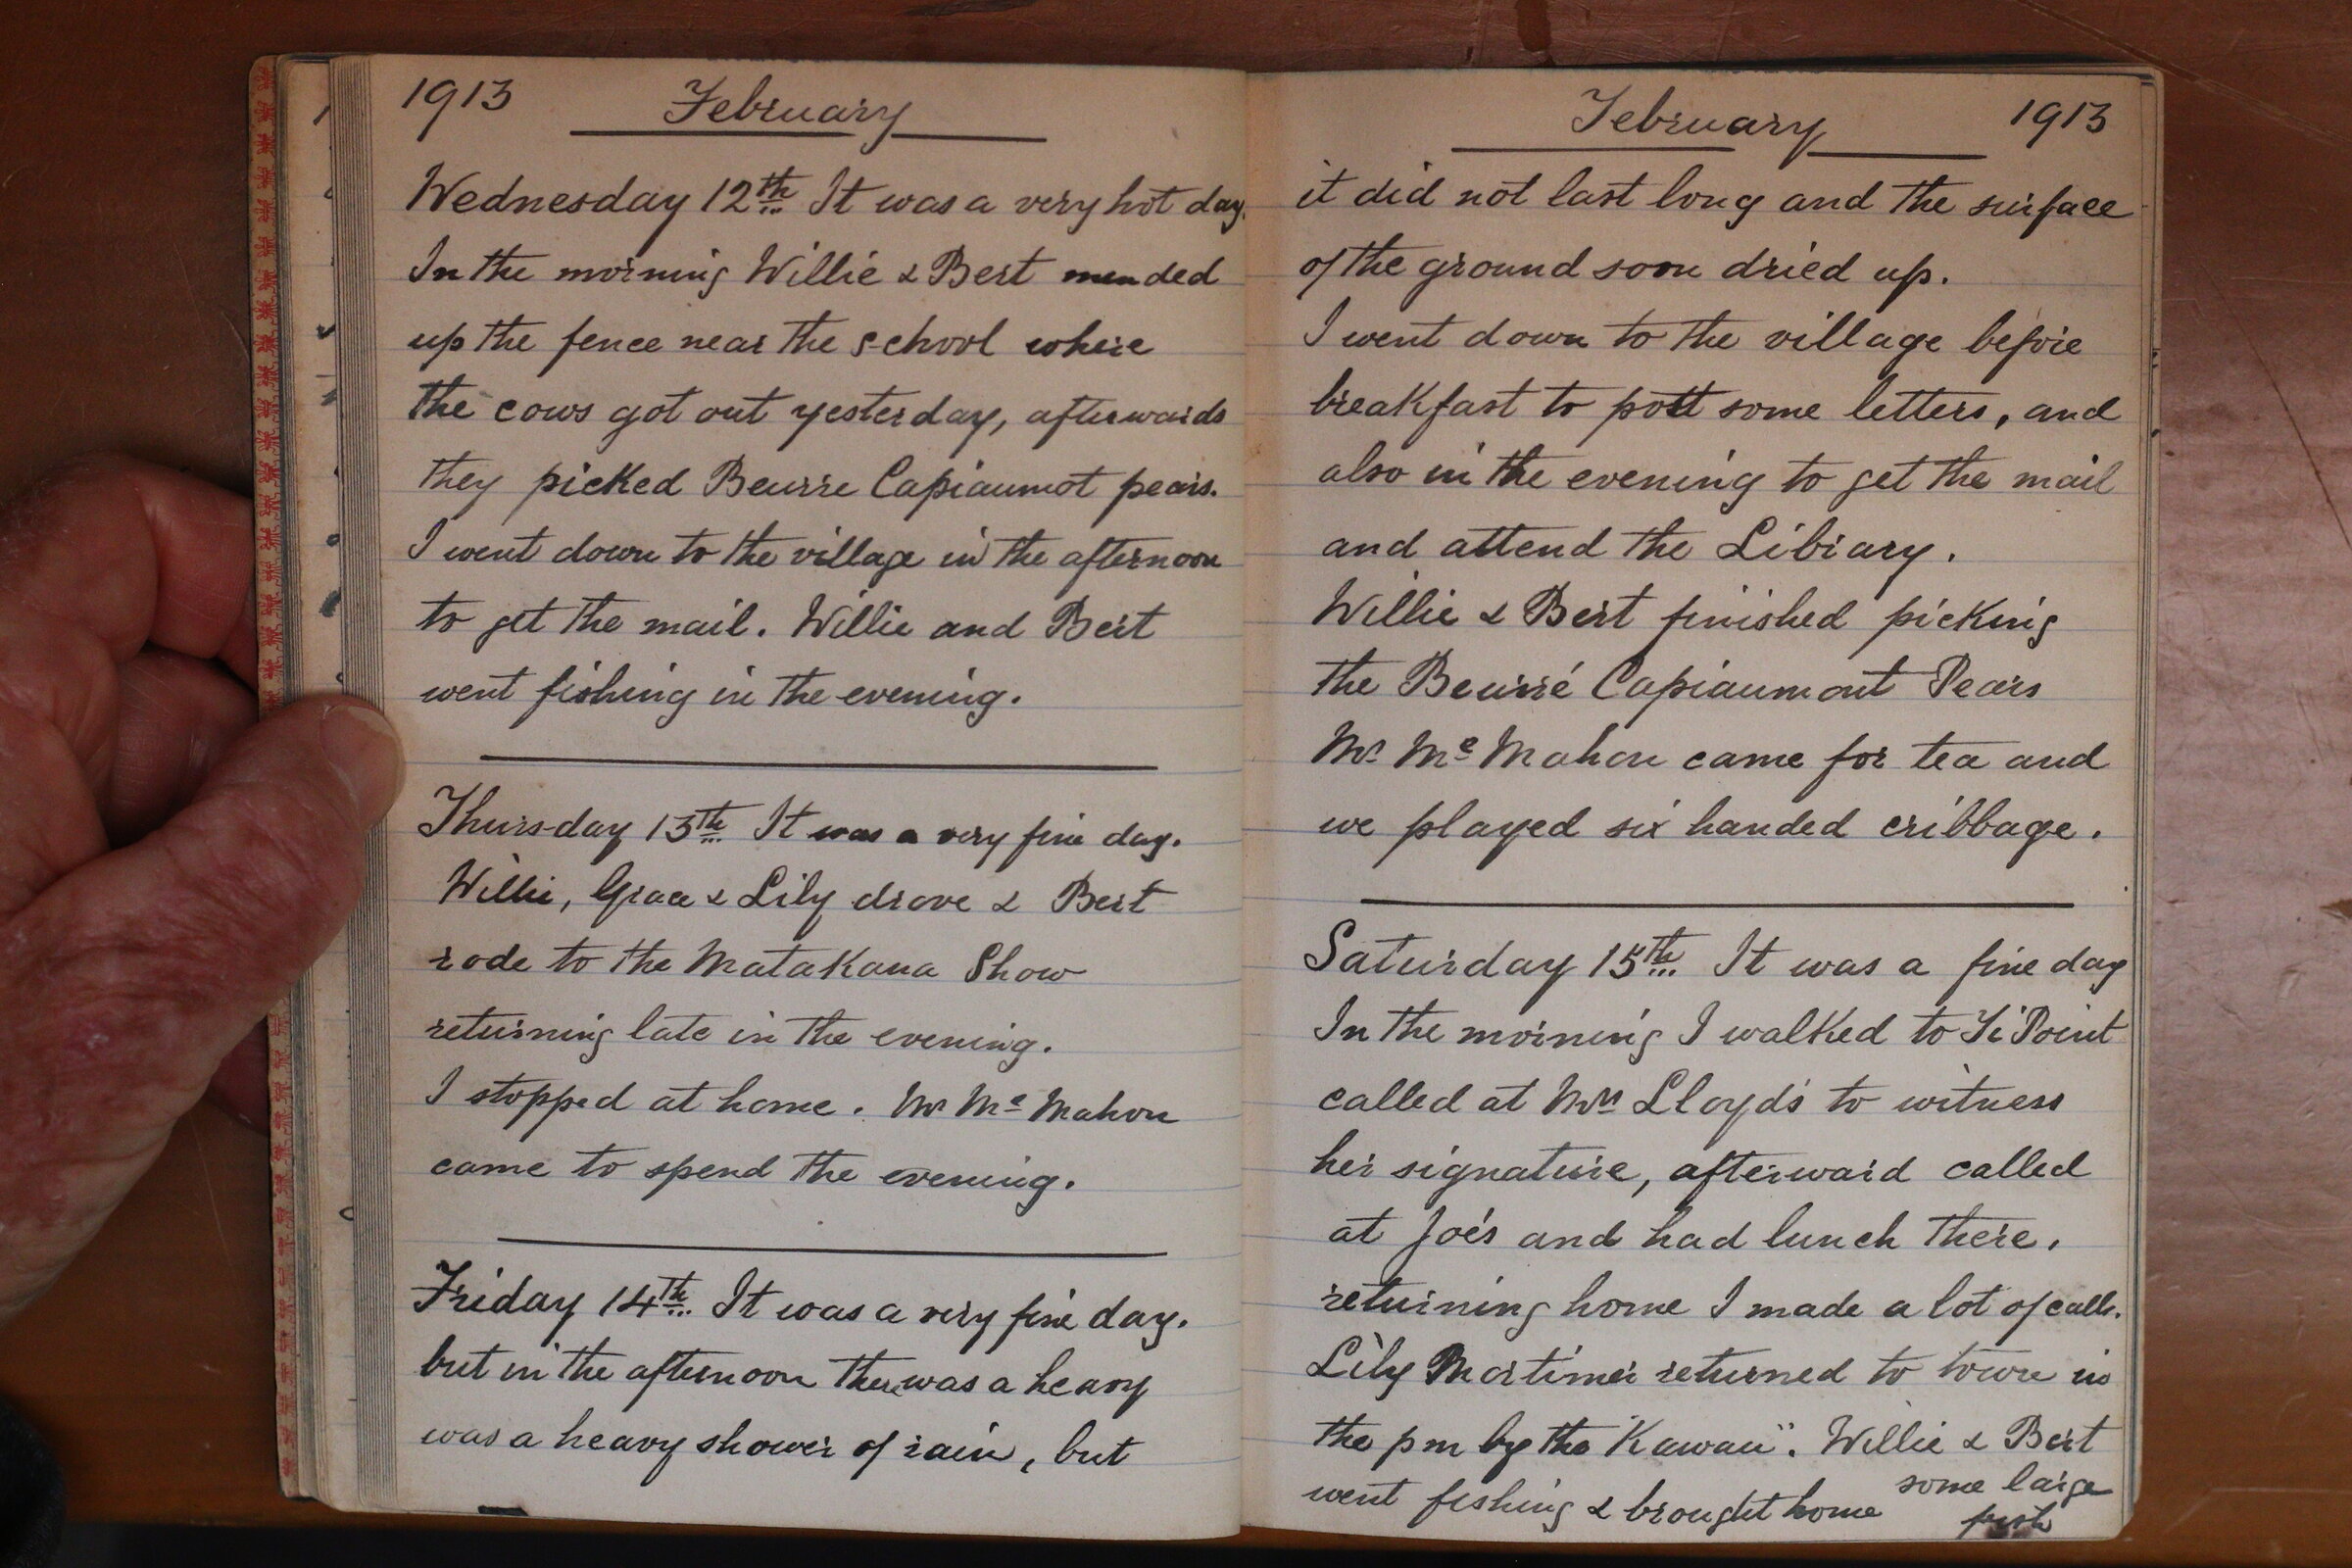 1913 February
Wednesday 12th It was a very hot day.
In the morning Willie & Bert mended
up the fence near the school where
the cows got out yesterday, afterwards
they picked Beurre Capiaumot pears.
I went down to the village in the afternoon
to get the mail. Willie and Bert
went fishing in the evening.
Thursday 13th It was a very fine day.
Willie, Grace & Lily drove & Bert
rode to the Matakana Show
returning late in the evening.
I stopped at home. Mr Mc Mahon
came to spend the evening.
Friday 14th It was a very fine day.
but in the afternoon there was a heavy
was a heavy shower of rain, but
February 1913
it did not last long and the surface
of the ground soon dried up.
I went down to the village before
breakfast to post some letters, and
also in the evening to get the mail
and attend the Library.
Willie & Bert finished picking
the Beurré Capiaumont Pears
Mr Mc Mahon came for tea and
we played six handed cribbage.
Saturday 15th It was a fine day
In the morning I walked to Ti Point
called at Mrs Lloyd's to witness
her signature, afterward called
at Joe's and had lunch there.
returning home I made a lot of calls.
Lily Mortimer returned to town in
the pm by the "Kawau". Willie & Bert
went fishing & brought home some large
fish